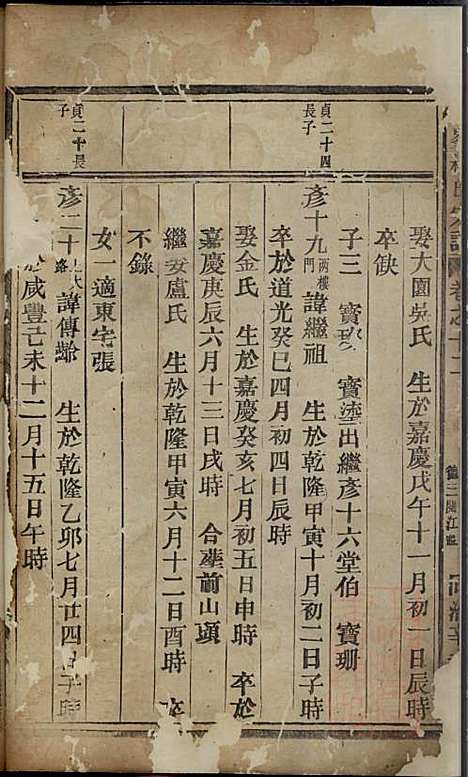 娶大園吳氏　生於嘉慶戊午十一月初一日辰時
卒缺
子三　寶　寶塗出繼彥十六堂伯　寶珊
貞二十四長子
彥十九　兩樓門　諱繼祖　生於乾隆甲寅十月初二日子時
卒於道光癸巳四月初四日辰時
娶金氏　生於嘉慶癸亥七月初五日申時　卒於
嘉慶庚辰六月十三日戌時　合塟前山頭
繼娶盧氏　生於乾隆甲寅六月十二日酉時　卒
不錄
女一適東宅張
貞二十長子
彥二十　路　諱傳　生於乾隆乙卯七月廿四日子時
咸豐己未十二月十五日午時